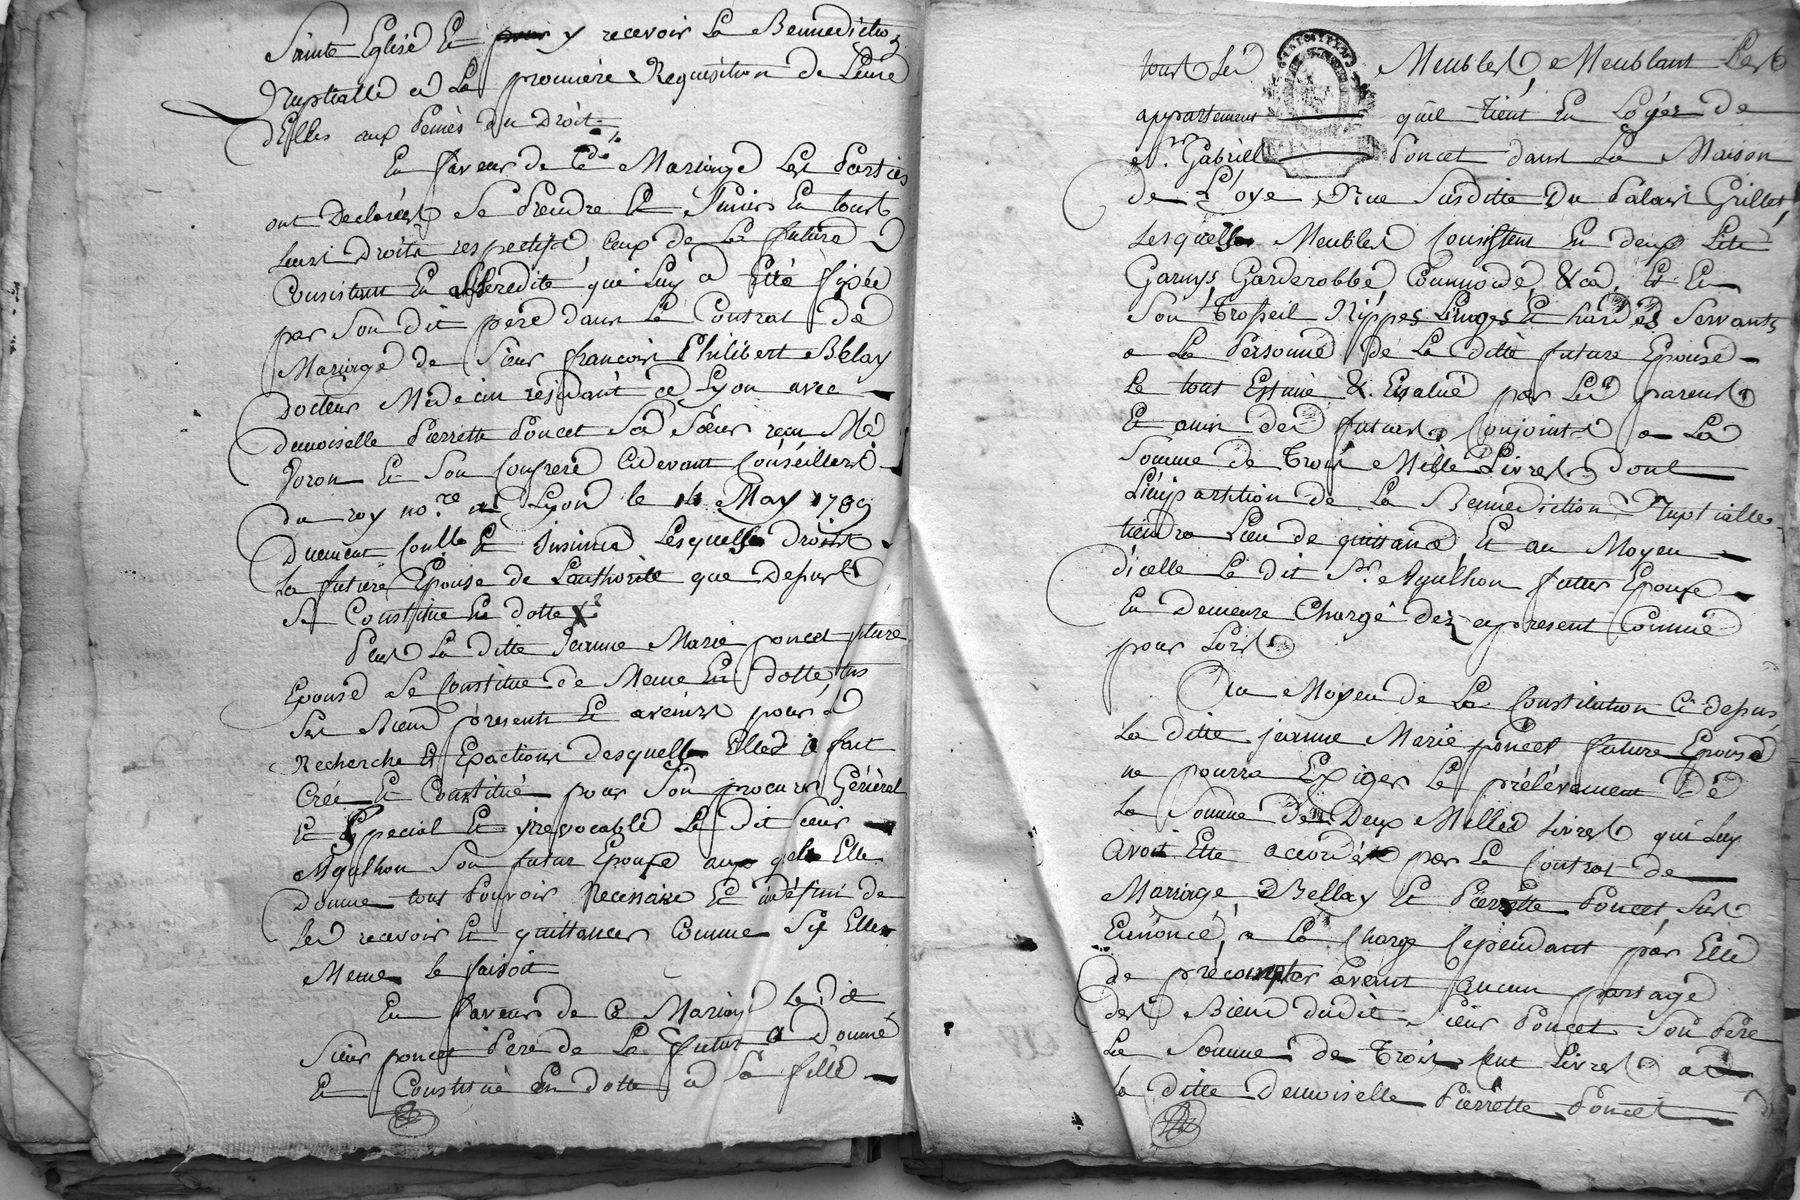 Sainte Eglise Et y recevoir La Bennediction
Nuptialle a La premiere Requisition de L'une
d'Elles aux peines du Droit
En faveur de Cedt Mariage Les Parties
ont Declarées Se Prendre Et S'unir En tous
leurs Droits respectifs Ceux de La future
Consistant En Lheredité qui Luy a Etté fixée
par Son dit pere dans Le Contrat de
Mariage de Sieur françois Philibert Belay
Docteur Médecin résidant a Lyon avec
demoiselle Pierrette Poncet Sa Sœur reçu Me
Voron Et Son Confrere Cidevant Conseillers
du roy nore a Lyon le 14 May 1789
Duement Conllé Et Insinué Lesquels Droits
la future Epouse de Lauthorité que Dessus
Se Constitue En dotte
Plus La ditte Jeanne Marie poncet future
Epouse Se Constitue de Meme En dotte tous
Ses Biens présents Et avenirs pour a
Recherche Et Exactions desquels Elle a fait
Créé Et Constitué pour Son procureur Général
Et Special Et yrevocable Le dit sieur
Agulhon Son futur Epoux auquel Elle
Donne tout Pouvoir Necessaire Et indéfini de
Les recevoir Et quittancer Comme Sy Elle
Meme le faisoit
En faveur de Ce Mariage Le Dit
Sieur poncet Pere de La future a Donné
Et Constitué En dotte a Sa fille
tous Les Meubles Meublant Les
appartement quil tient En Loyer de
Sr. Gabriel Poncet dans La Maison
de L'oye Rue Susditte Du Palais Grillet,
Lesquels Meubles Consistent En deux Lits
Garnys, Garderobbe, Commode, &ca, Et En
Son Trosseil Nippes Linges Et hardes Servants
a La Personne de La ditte future Epouse
Le tout Estimé & Evalué par Les parents
Et amis des futurs Conjoints a La
Somme de Trois Mille Livres dont
L'impartition de La Bennediction Nuptialle
tiendra Lieu de quittance Et au Moyen
d'icelle Le dit Sr. Agulhon futur Epoux
En demeure Chargé dez apresent Comme
pour Lors
Au Moyen de La Constitution Ci dessus,
La ditte jeanne Marie poncet future Epouse
ne pourra Exiger Le prélévement de
La Somme de Deux Milles Livres qui Luy
avoit Etté accordée par Le Contrat de
Mariage Bellay Et Pierrette Poncet, Sus
Enoncé, a La Charge Cependant par Elle
de précompter avant aucun partage
des Biens dudit Sieur Poncet Son Pere
La Somme de Trois Cent Livres a
la ditte Demoiselle Pierrette Poncet